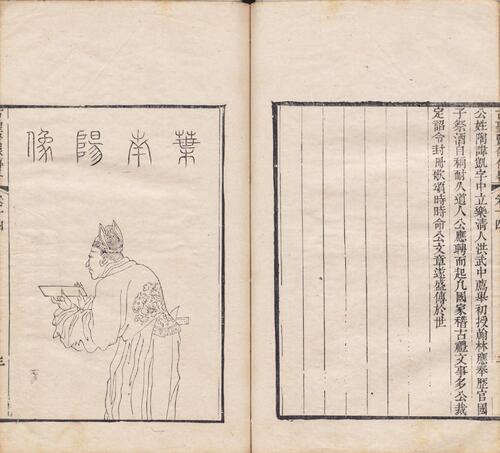 公姓陶諱凱字中立樂清人洪武中薦舉初授翰林應奉歷官國
子祭酒自稱耐久道人公應聘而起凡國家稽古禮文事多公裁
定詔令封冊歌頌時時命公文章遂盛傳於世
葉南陽像
卷十四